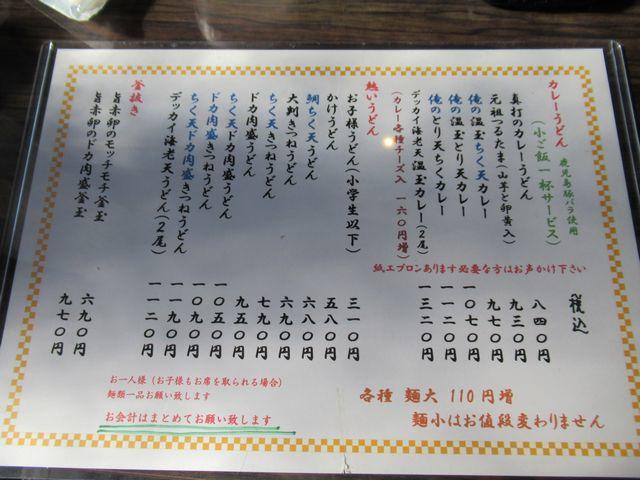 カレーうどん 鹿児島豚バラ使用
(小ご飯一杯サービス)
税込
真打のカレーうどん 八四〇円
元祖つるたま(山芋と卵黄入) 九三〇円
俺の温玉ちく天カレー 九七〇円
俺の温玉とり天カレー 一〇七〇円
俺のとり天ちくカレー 一一二〇円
デッカイ海老天温玉カレー(2尾) 一三二〇円
(カレー各種チーズ入 一六〇円増)
紙エプロンあります必要な方はお声かけ下さい
熱いうどん
お子様うどん(小学生以下) 三一〇円
かけうどん 五八〇円
鯛ちく天うどん 六八〇円
大判きつねうどん 六九〇円
ちく天きつねうどん 七九〇円
ドカ肉盛うどん 九五〇円
ちく天ドカ肉盛うどん 一〇五〇円
ドカ肉盛きつねうどん 一〇九〇円
ちく天ドカ肉盛きつねうどん 一一九〇円
デッカイ海老天うどん(2尾) 一一二〇円
釜抜き
旨赤卵のモッチモチ釜玉 六九〇円
旨赤卵のドカ肉盛釜玉 九七〇円
各種 麺大 110円増
麺小はお値段変わりません
お一人様(お子様もお席を取られる場合)
麺類一品お願い致します
お会計はまとめてお願い致します